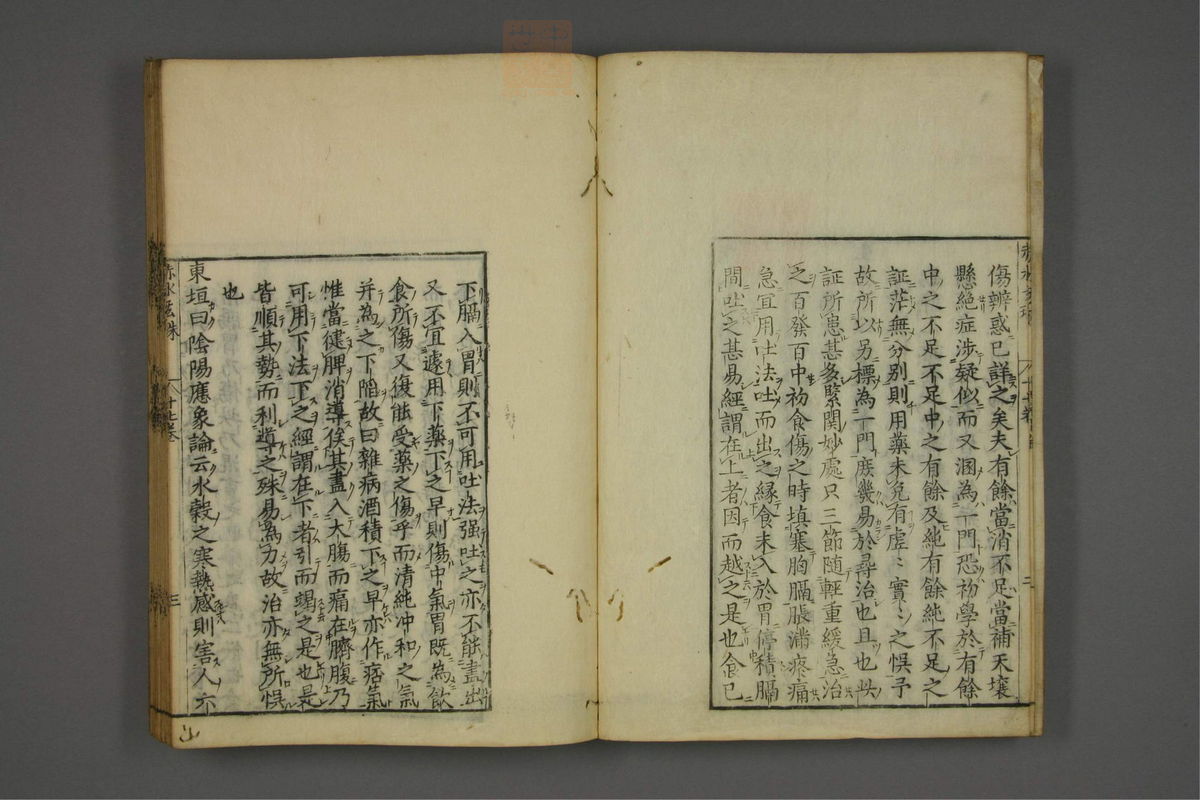 傷辨惑已詳之矣夫有餘當消不足當補天壤
懸絶症涉疑似而又溷為一門恐初學於有餘
中之不足不足中之有餘及純有餘純不足之
証茫無分別則用藥未免有虛〻實〻之悞予
故所以另標為一門庻幾易於尋治也且也此
証所患甚多緊関妙處只三節随輕重緩急治
之百發百中初食傷之時填塞胸膈脹滿疼痛
急宜用吐法吐而出之縁食未入於胃停積膈
間吐之甚易經謂在上者因而越之是也食已
下膈入胃則不可用吐法强吐之亦不能盡出
又不宜遽用下藥下之早則傷中氣胃既為飲
食所傷又復能受藥之傷乎而清純冲和之氣
并為之下陷故曰雜病酒積下之早亦作痞氣
惟當健脾消導俟其盡入大腸而痛在臍腹乃
可用下法下之經謂在下者引而竭之是也是
皆順其勢而利導之殊易為力故治亦無所悞
也
東垣曰陰陽應象論云水穀之寒熱感則害人六
赤水玄珠
十三卷
三